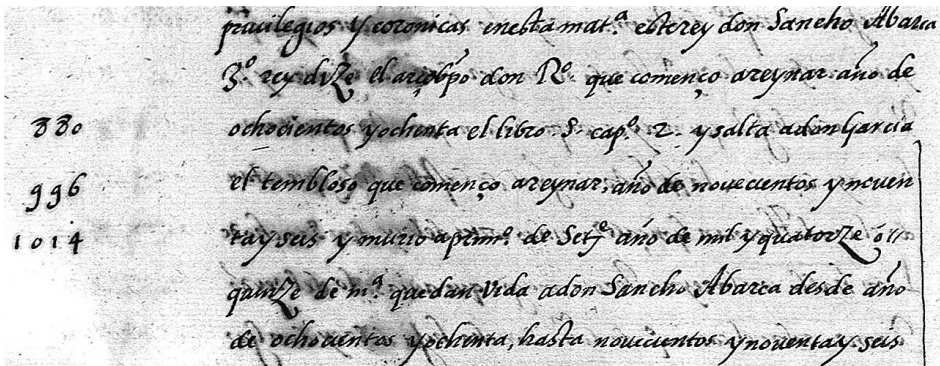 privilegios y coronicas enesta mat.ª este rey don Sancho Abarca
3.º rey dize el arçobpo don R.º que començo areynar año de
880 ochocientos yochenta el libro 5. cap.º 2. ysalta adon Garcia
996 el tembloso que començo areynar, año de novecientos ynouen
1014 tayseis y murio aprim.º de Set.e año de mil yquatorze ó
quinze de m.ª quedan vida adon Sancho Abarca desde año
de ochocientos yochenta, hasta novecientos ynoventay seis